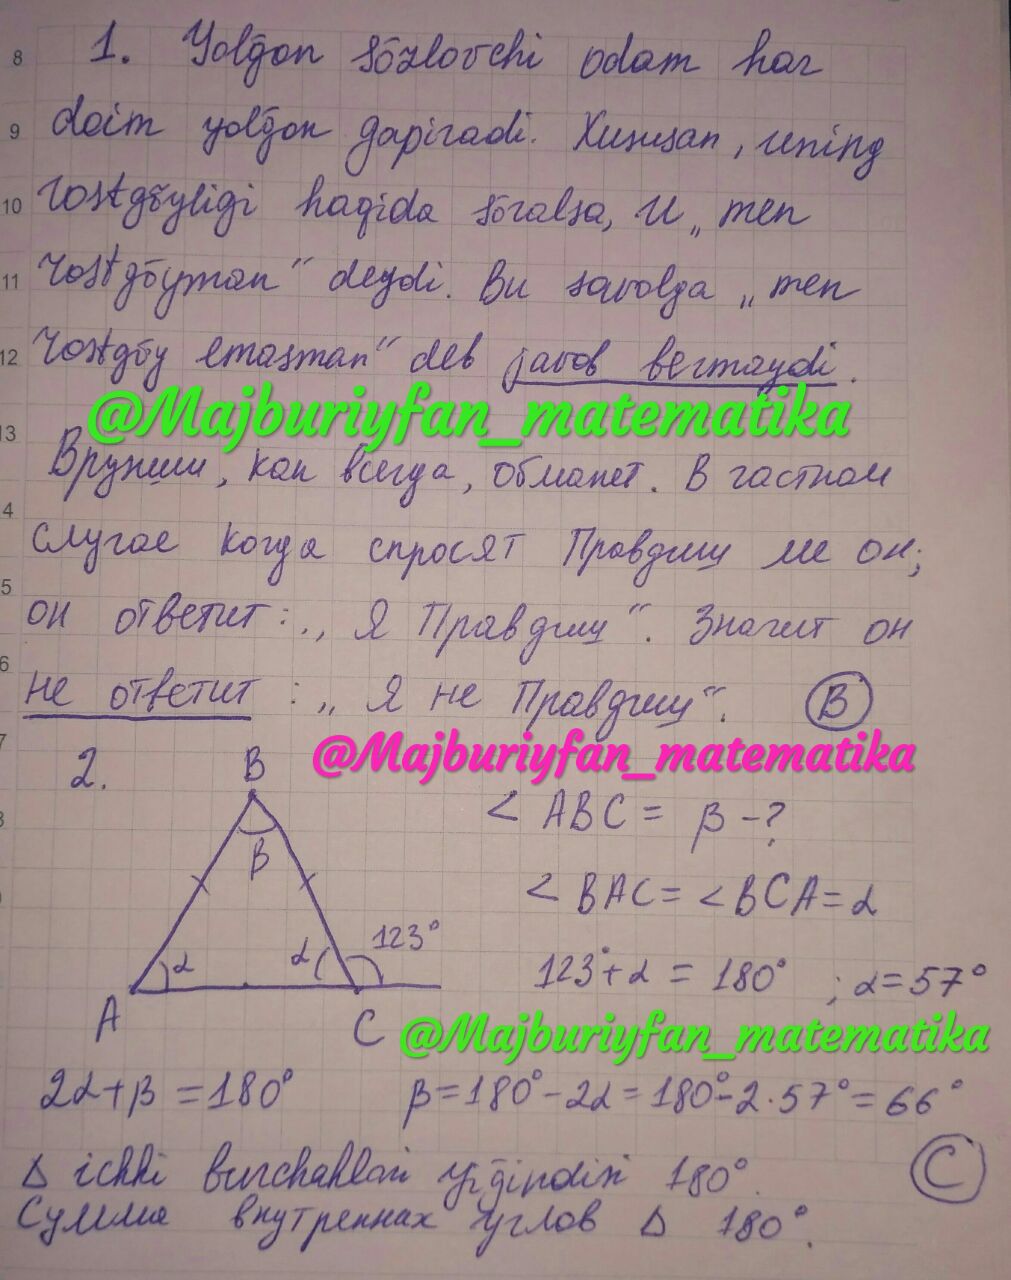 8
1. Yolg̃on sõzlovchi odam har
9
doim yolg̃on gapiradi. Xususan, uning
10
rostgõyligi haqida sõralsa, u „men
11
rostgõyman“ deydi. Bu savolga „men
12
rostgõy emasman“ deb javob bermaydi.
@Majburiyfan_matematika
13
Врунши, как всегда, обманет. В частном
4
случае когда спросят Правдищ ли он;
5
он ответит: „Я Правдищ“. Значит он
6
не ответит: „Я не Правдищ“. B
7
@Majburiyfan_matematika
2.
B
β
< ABC = β - ?
< BAC = < BCA = α
α
α
123°
123° + α = 180° ; α = 57°
A
C
@Majburiyfan_matematika
2α + β = 180° β = 180° - 2α = 180° - 2·57° = 66°
C
Δ ichki burchaklari yig̃indisi 180°.
Сумма внутреннах углов Δ 180°.